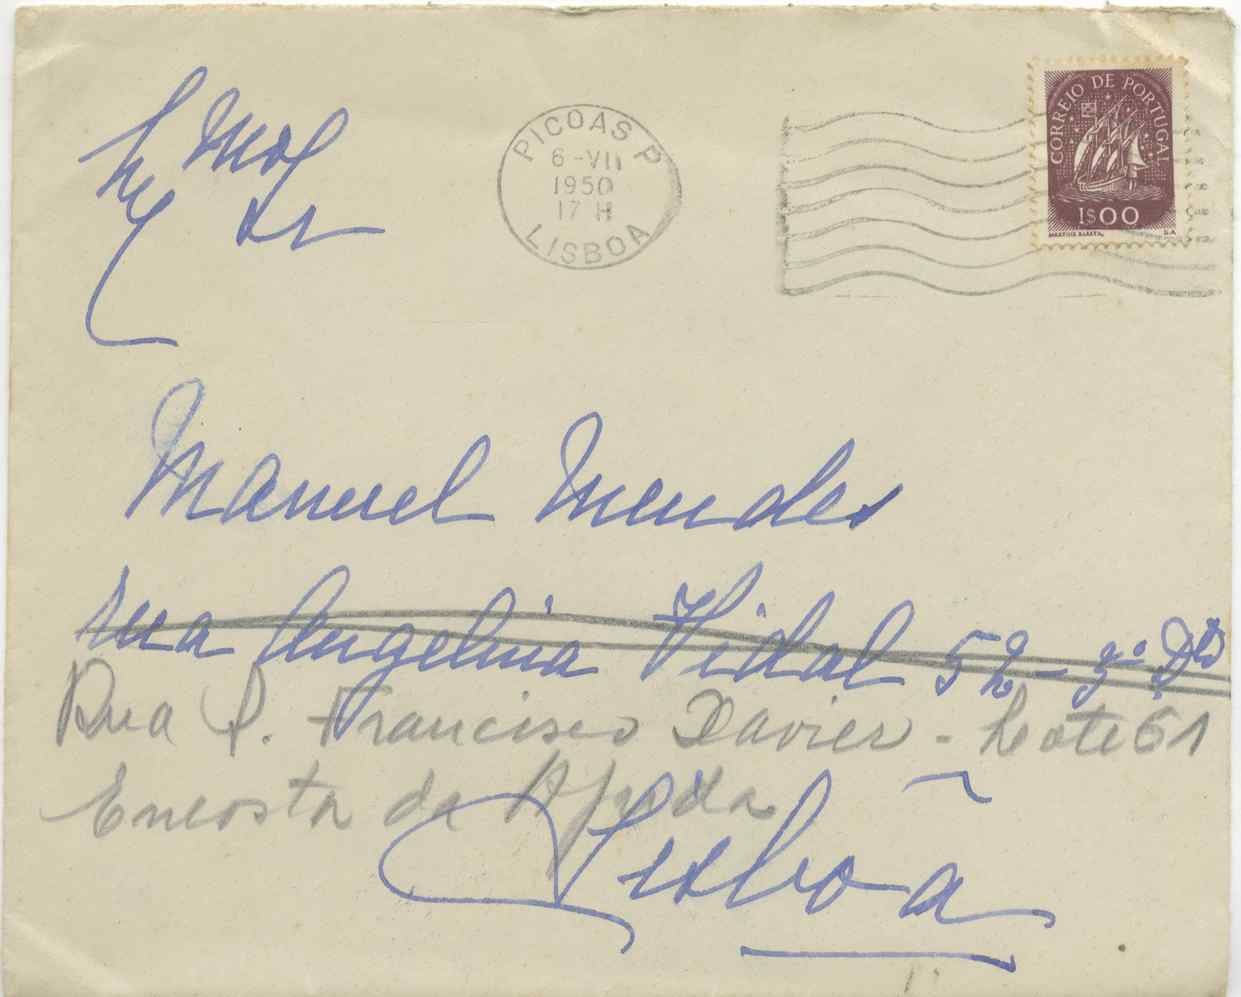 Exmo
Sr
PICOAS P
6-VII
1950
17 H
LISBOA
CORREIO DE PORTUGAL
1$00
Manuel Mendes
rua Angelina Vidal 52-3º Dto
Rua S. Francisco Xavier - Lote 61
Encosta da Ajuda
Lisboa